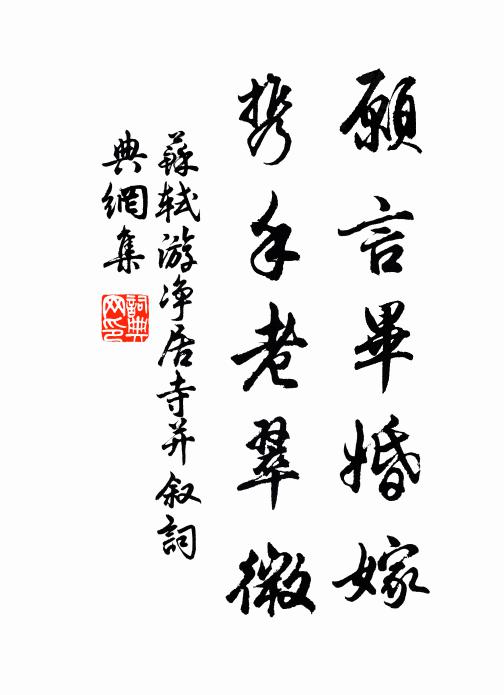 願言畢婚嫁
携手老翠微
蘇軾游净居寺并叙詞
典網集
詞典网印